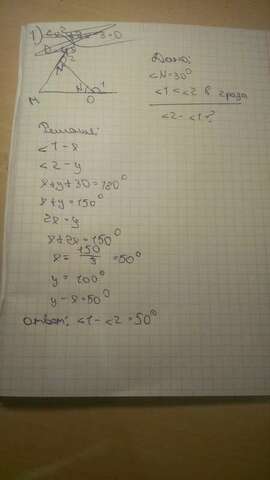 1)
2
M
N
1
M
O
Дано:
<N=30°
<1 < <2 в 2 раза
<2 - <1-?
Решение:
<1 - x
<2 - y
x+y+30=180°
x+y=150°
2x=y
x+2x=150°
x= 150/3 =50°
y=100°
y-x=50°
ответ: <1 - <2 =50°